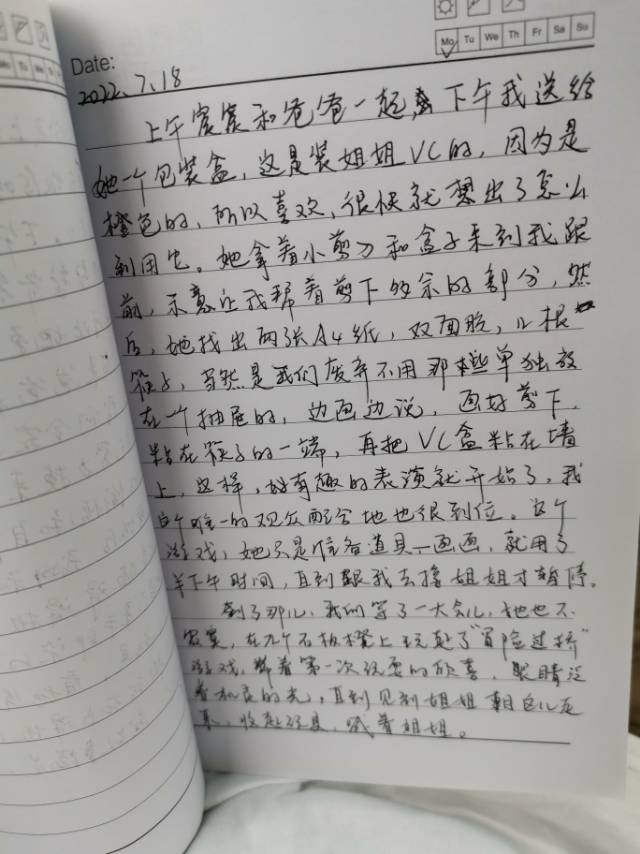 Mo Tu We Th Fr Sa Su
Date:
2022.7.18
上午宸宸和爸爸一起,下午我送给
她一个包装盒,这是装姐姐VC的,因为是
橙色的,所以喜欢,很快就想出了怎么
利用它。她拿着小剪刀和盒子来到我跟
前,示意让我帮着剪下多余的部分,然
后,她找出两张A4纸,双面胶,几根
筷子,当然是我们废弃不用那些单独放
在一个抽屉的,边画边说,画好剪下,
粘在筷子的一端,再把VC盒粘在墙
上,这样,她有趣的表演就开始了,我
这个唯一的观众配合地也很到位。这个
游戏,她只是准备道具一画画,就用了
半下午时间,直到跟我去接姐姐才暂停。
到了那儿,我们等了一大会儿,她也不
寂寞,在几个石板凳上玩起了“冒险过桥”
游戏,带着第一次玩耍的欣喜,眼睛泛
着机灵的光,直到见到姐姐朝这儿走
来,收起玩具,喊着姐姐。